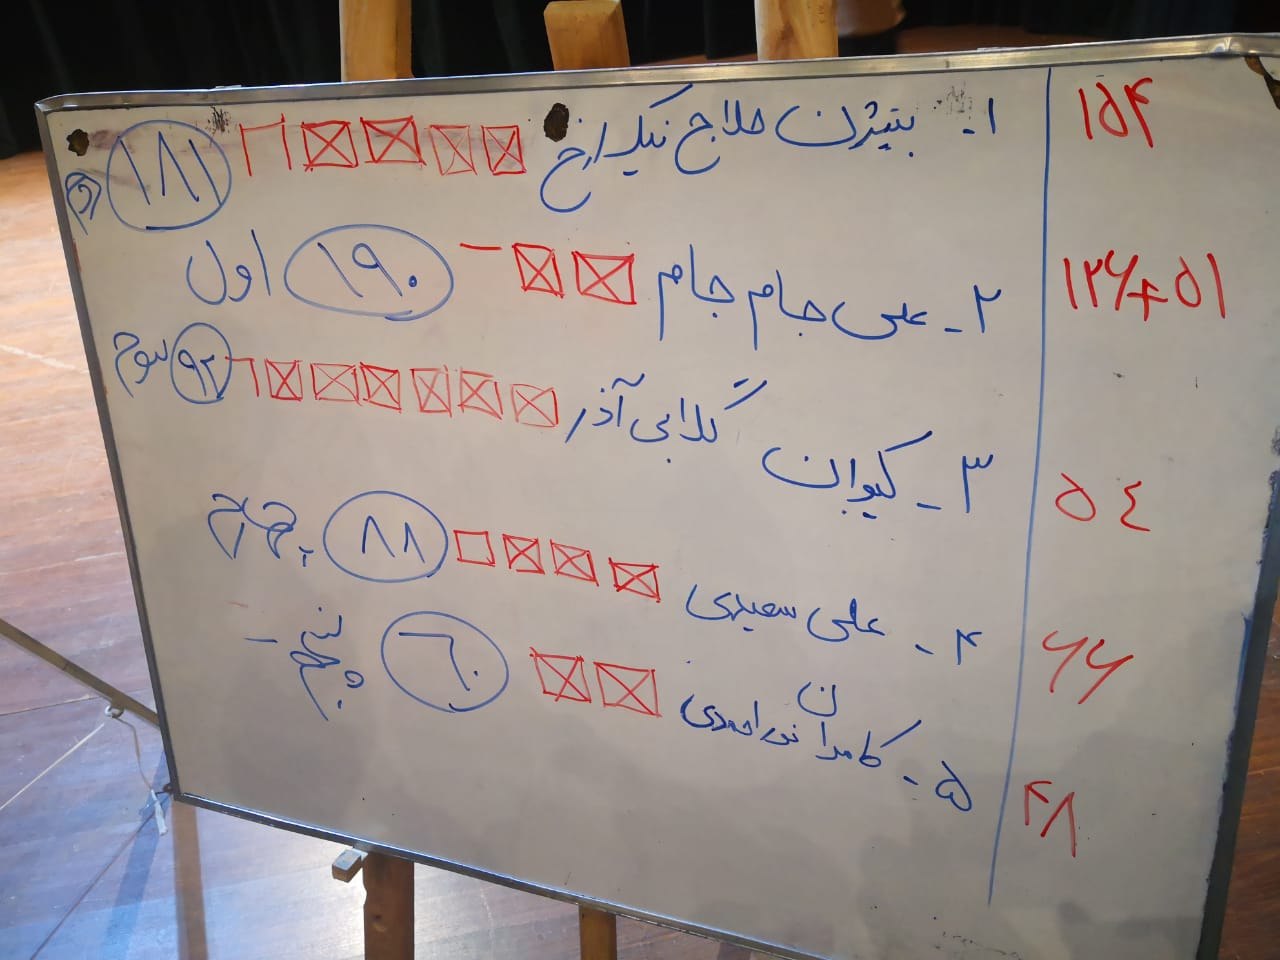 ۱۵۴ ۱- بیژن حلاج نیک رخ ۱۸۱ دوم
۱۲۶+۵۱ ۲- علی جام جام ۱۹۰ اول
۵۴ ۳- کیوان گلابی آذر ۹۲ سوم
۶۶ ۴- علی سعیدی ۸۸ چهارم
۴۸ ۵- کامران نوراحمدی ۶۰ پنجم